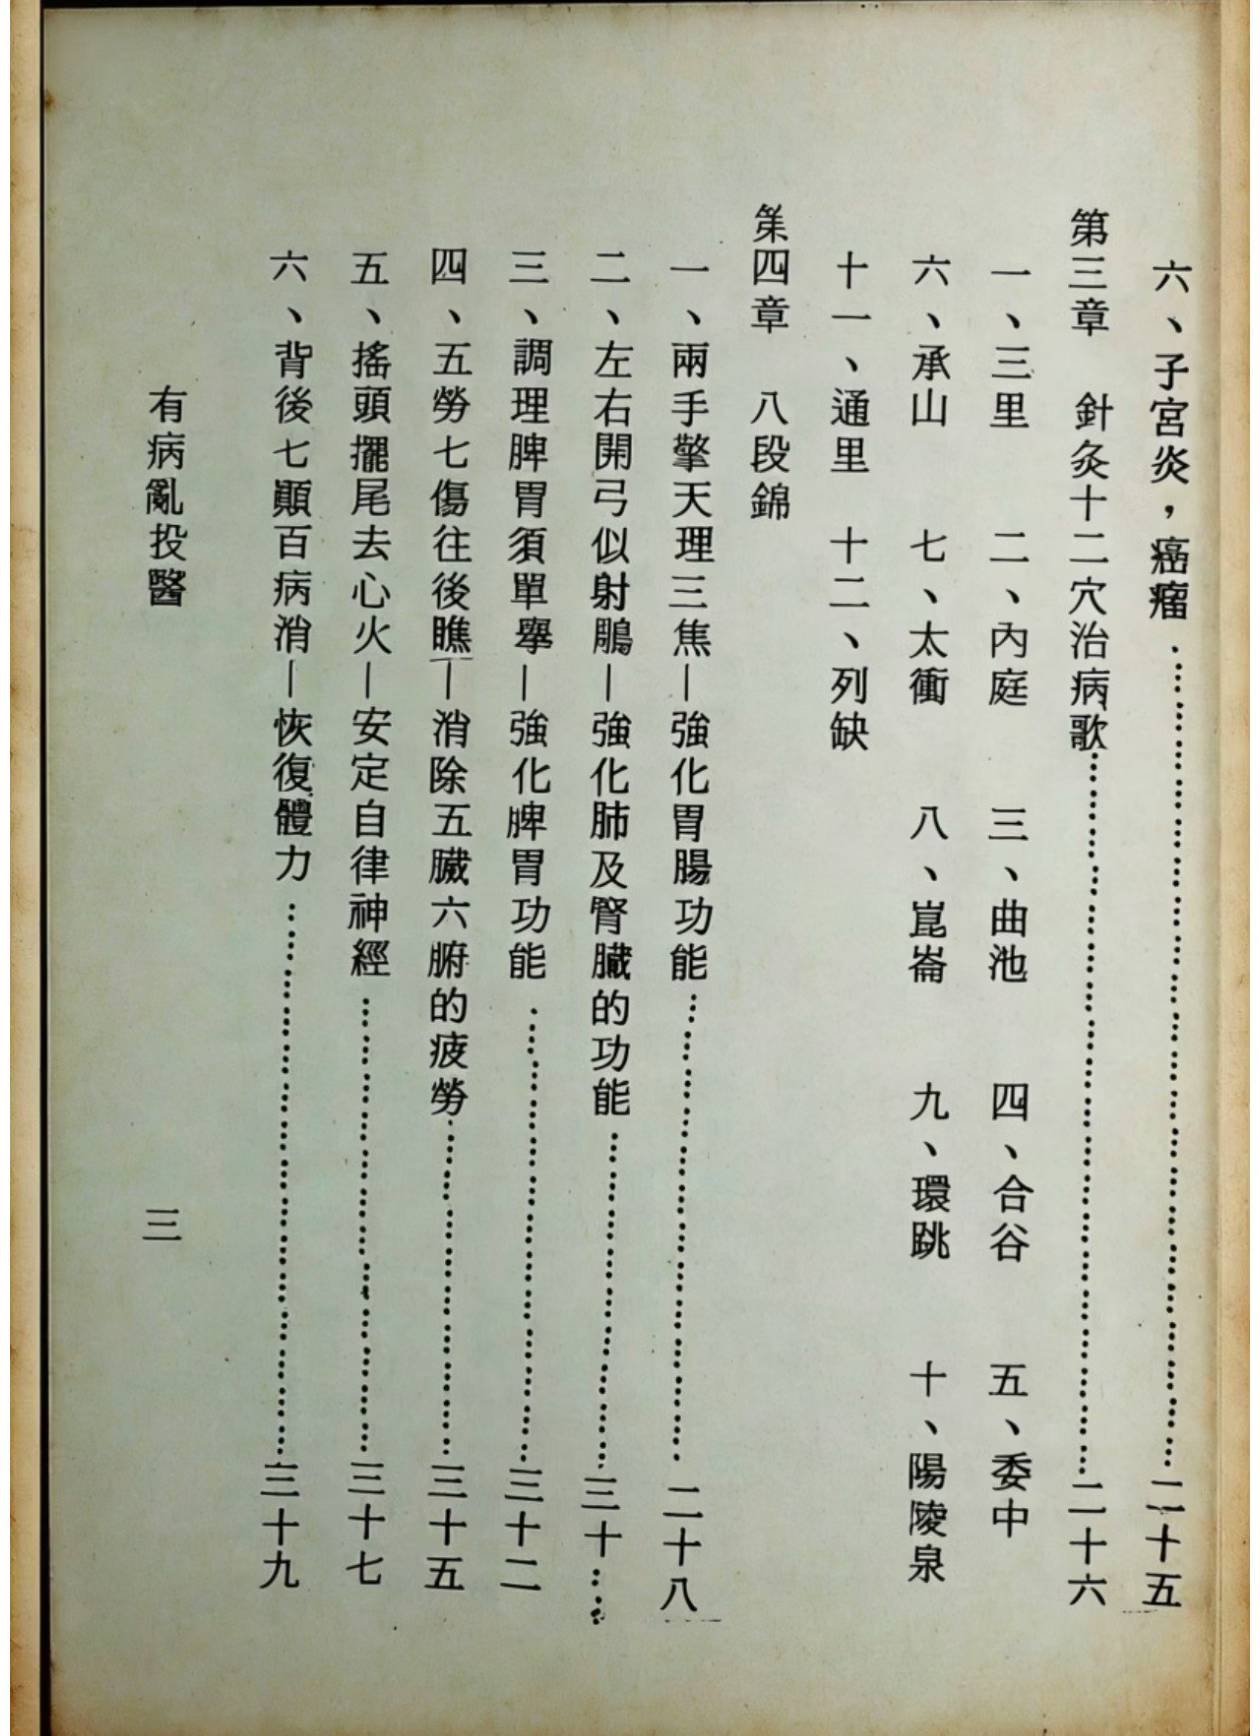 六、子宮炎，癌瘤……………………二十五
第三章　針灸十二穴治病歌……………………二十六
一、三里　二、內庭　三、曲池　四、合谷　五、委中
六、承山　七、太衝　八、崑崙　九、環跳　十、陽陵泉
十一、通里　十二、列缺
第四章　八段錦
一、兩手擎天理三焦—強化胃腸功能……………………二十八
二、左右開弓似射鵰—強化肺及腎臟的功能……………………三十
三、調理脾胃須單舉—強化脾胃功能……………………三十二
四、五勞七傷往後瞧—消除五臟六腑的疲勞……………………三十五
五、搖頭擺尾去心火—安定自律神經……………………三十七
六、背後七顛百病消—恢復體力……………………三十九
有病亂投醫　三